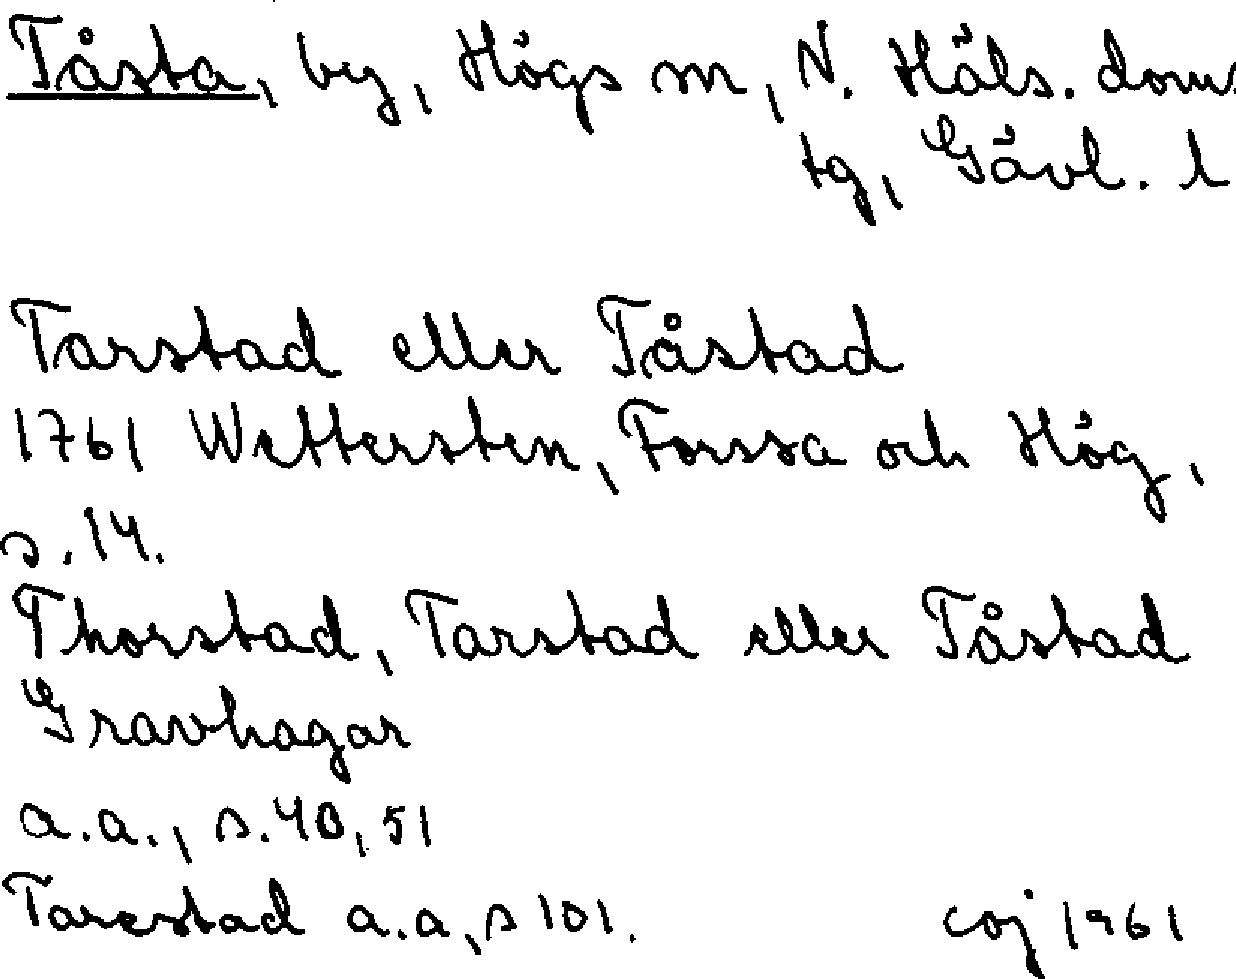 Tåsta, by, Högs sn, N. Häls. doms.
tg, Gävl. l
Tarstad eller Tåstad
1761 Wettersten, Forssa och Hög,
s. 14.
Thorstad, Tarstad eller Tåstad
Gravhagar
a.a., s. 40, 51
Tarestad a.a, s 101. coj 1961